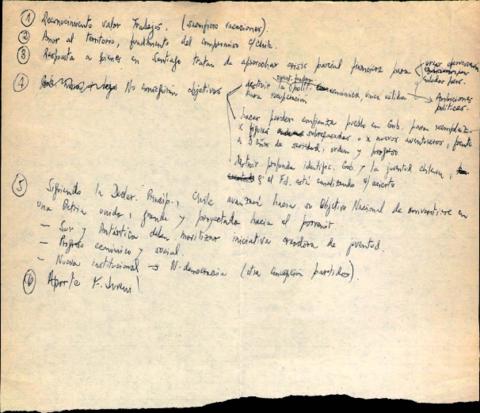 ① Reconocimiento valor Trabajos. (sacrificio vacaciones).
② Amor al territorio, fundamento del compromiso c/Chile.
③ Respuesta a quienes en Santiago tratan de aprovechar crisis parcial financiera para
④ No conseguirán objetivos
destruir la polít. económica, única salida
para recuperación
Ambiciones
políticas.
hacer perder confianza pueblo en Gob. para
a nuevos aventureros, frente
a 9 años de seriedad, orden y progreso
Destruir profunda identific. Gob y la juventud chilena,
el Pd. está conduciendo c/acierto
⑤ Siguiendo la Declar. Princip., Chile avanzará hacia su Objetivo Nacional de convertirse en
una Patria unida, grande y proyectada hacia el porvenir
- Sur y Antártica deben movilizar iniciativas creadoras de juventud.
- Progreso económico y social.
- Nueva institucional → N. democracia (otra concepción partidos).
⑥ Aporte F. Juvenil